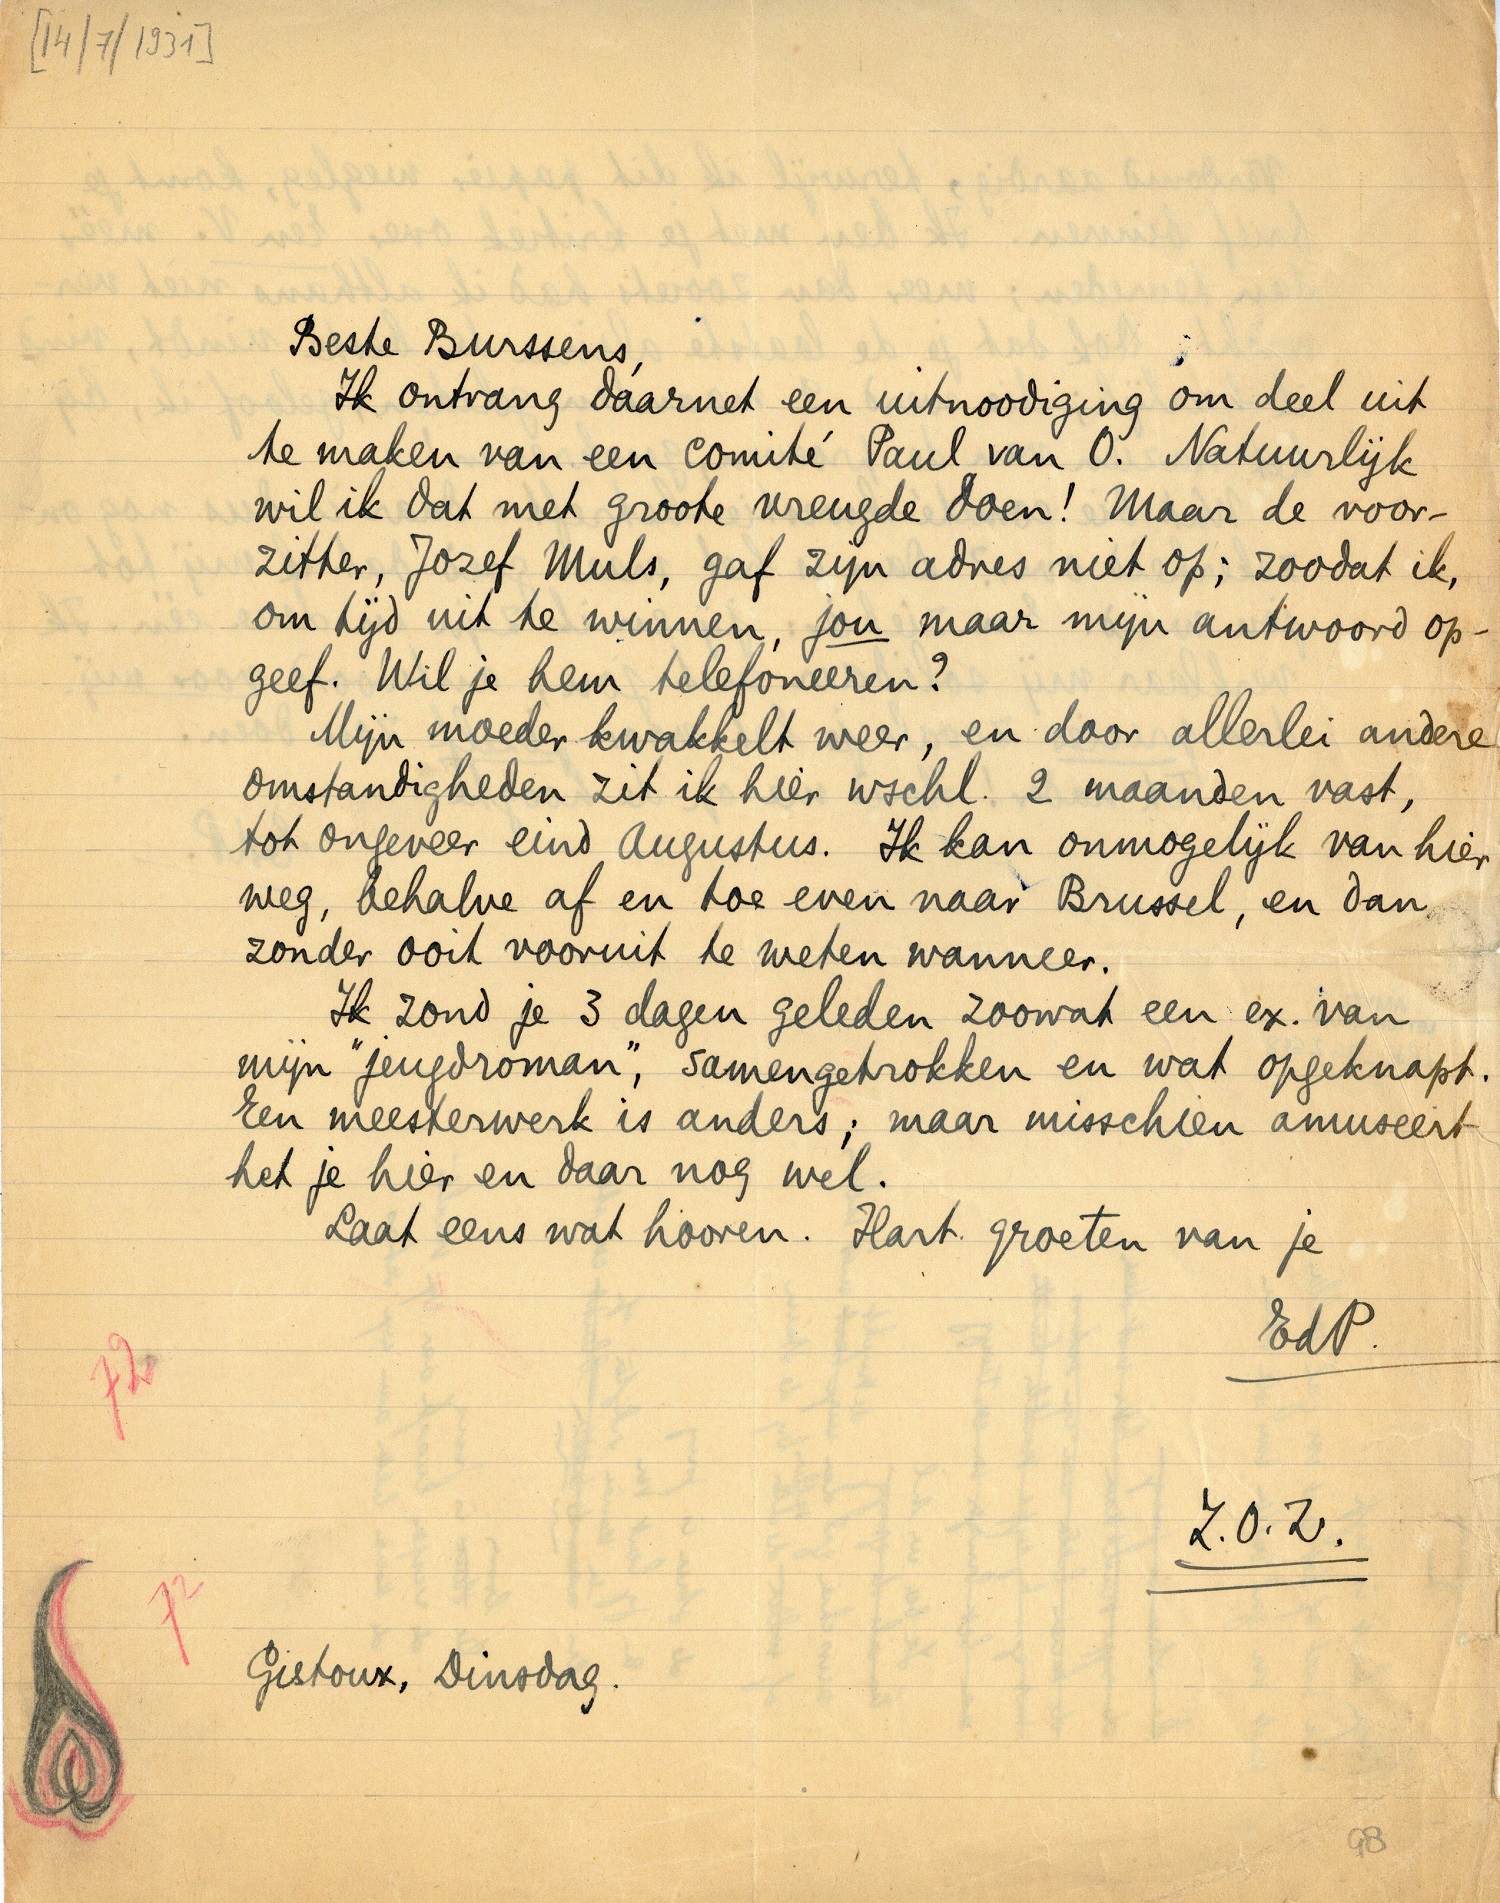 [14/7/1931]
Beste Burssens,
Ik ontvang daarnet een uitnoodiging om deel uit
te maken van een comité Paul van O. Natuurlijk
wil ik dat met groote vreugde doen! Maar de voor-
zitter, Jozef Muls, gaf zijn adres niet op; zoodat ik,
om tijd uit te winnen, jou maar mijn antwoord op-
geef. Wil je hem telefoneeren?
Mijn moeder kwakkelt weer, en door allerlei andere
omstandigheden zit ik hier wschl. 2 maanden vast,
tot ongeveer eind Augustus. Ik kan onmogelijk van hier
weg, behalve af en toe even naar Brussel, en dan
zonder ooit vooruit te weten wanneer.
Ik zond je 3 dagen geleden zoowat een ex. van
mijn "jeugdroman", samengetrokken en wat opgeknapt.
Een meesterwerk is anders; maar misschien amuseert
het je hier en daar nog wel.
Laat eens wat hooren. Hart. groeten van je
EdP.
72
Z.O.Z.
72
Gistoux, Dinsdag.
98